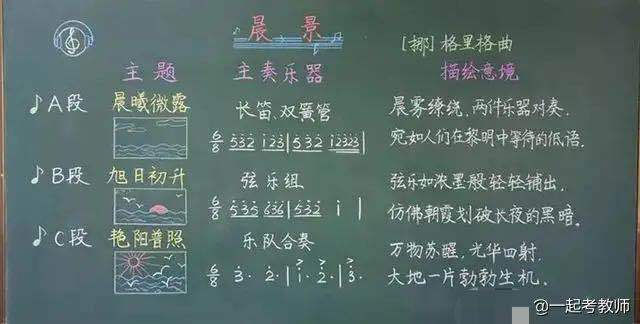 晨景
[挪]格里格曲
主题 主奏乐器 描绘意境
♪A段 晨曦微露 长笛、双簧管 晨雾缭绕,两件乐器对奏.
宛如人们在黎明中等待的低语.
♪B段 旭日初升 弦乐组 弦乐如浓墨般轻轻铺出.
仿佛朝霞划破长夜的黑暗.
♪C段 艳阳普照 乐队合奏 万物苏醒,光华四射.
大地一片勃勃生机.
@一起考教师